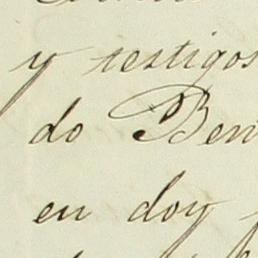 y testigos
do Ben
en doy